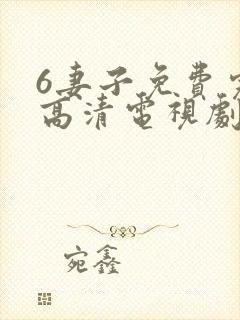 6妻子免費
高清電視劇
宛鑫